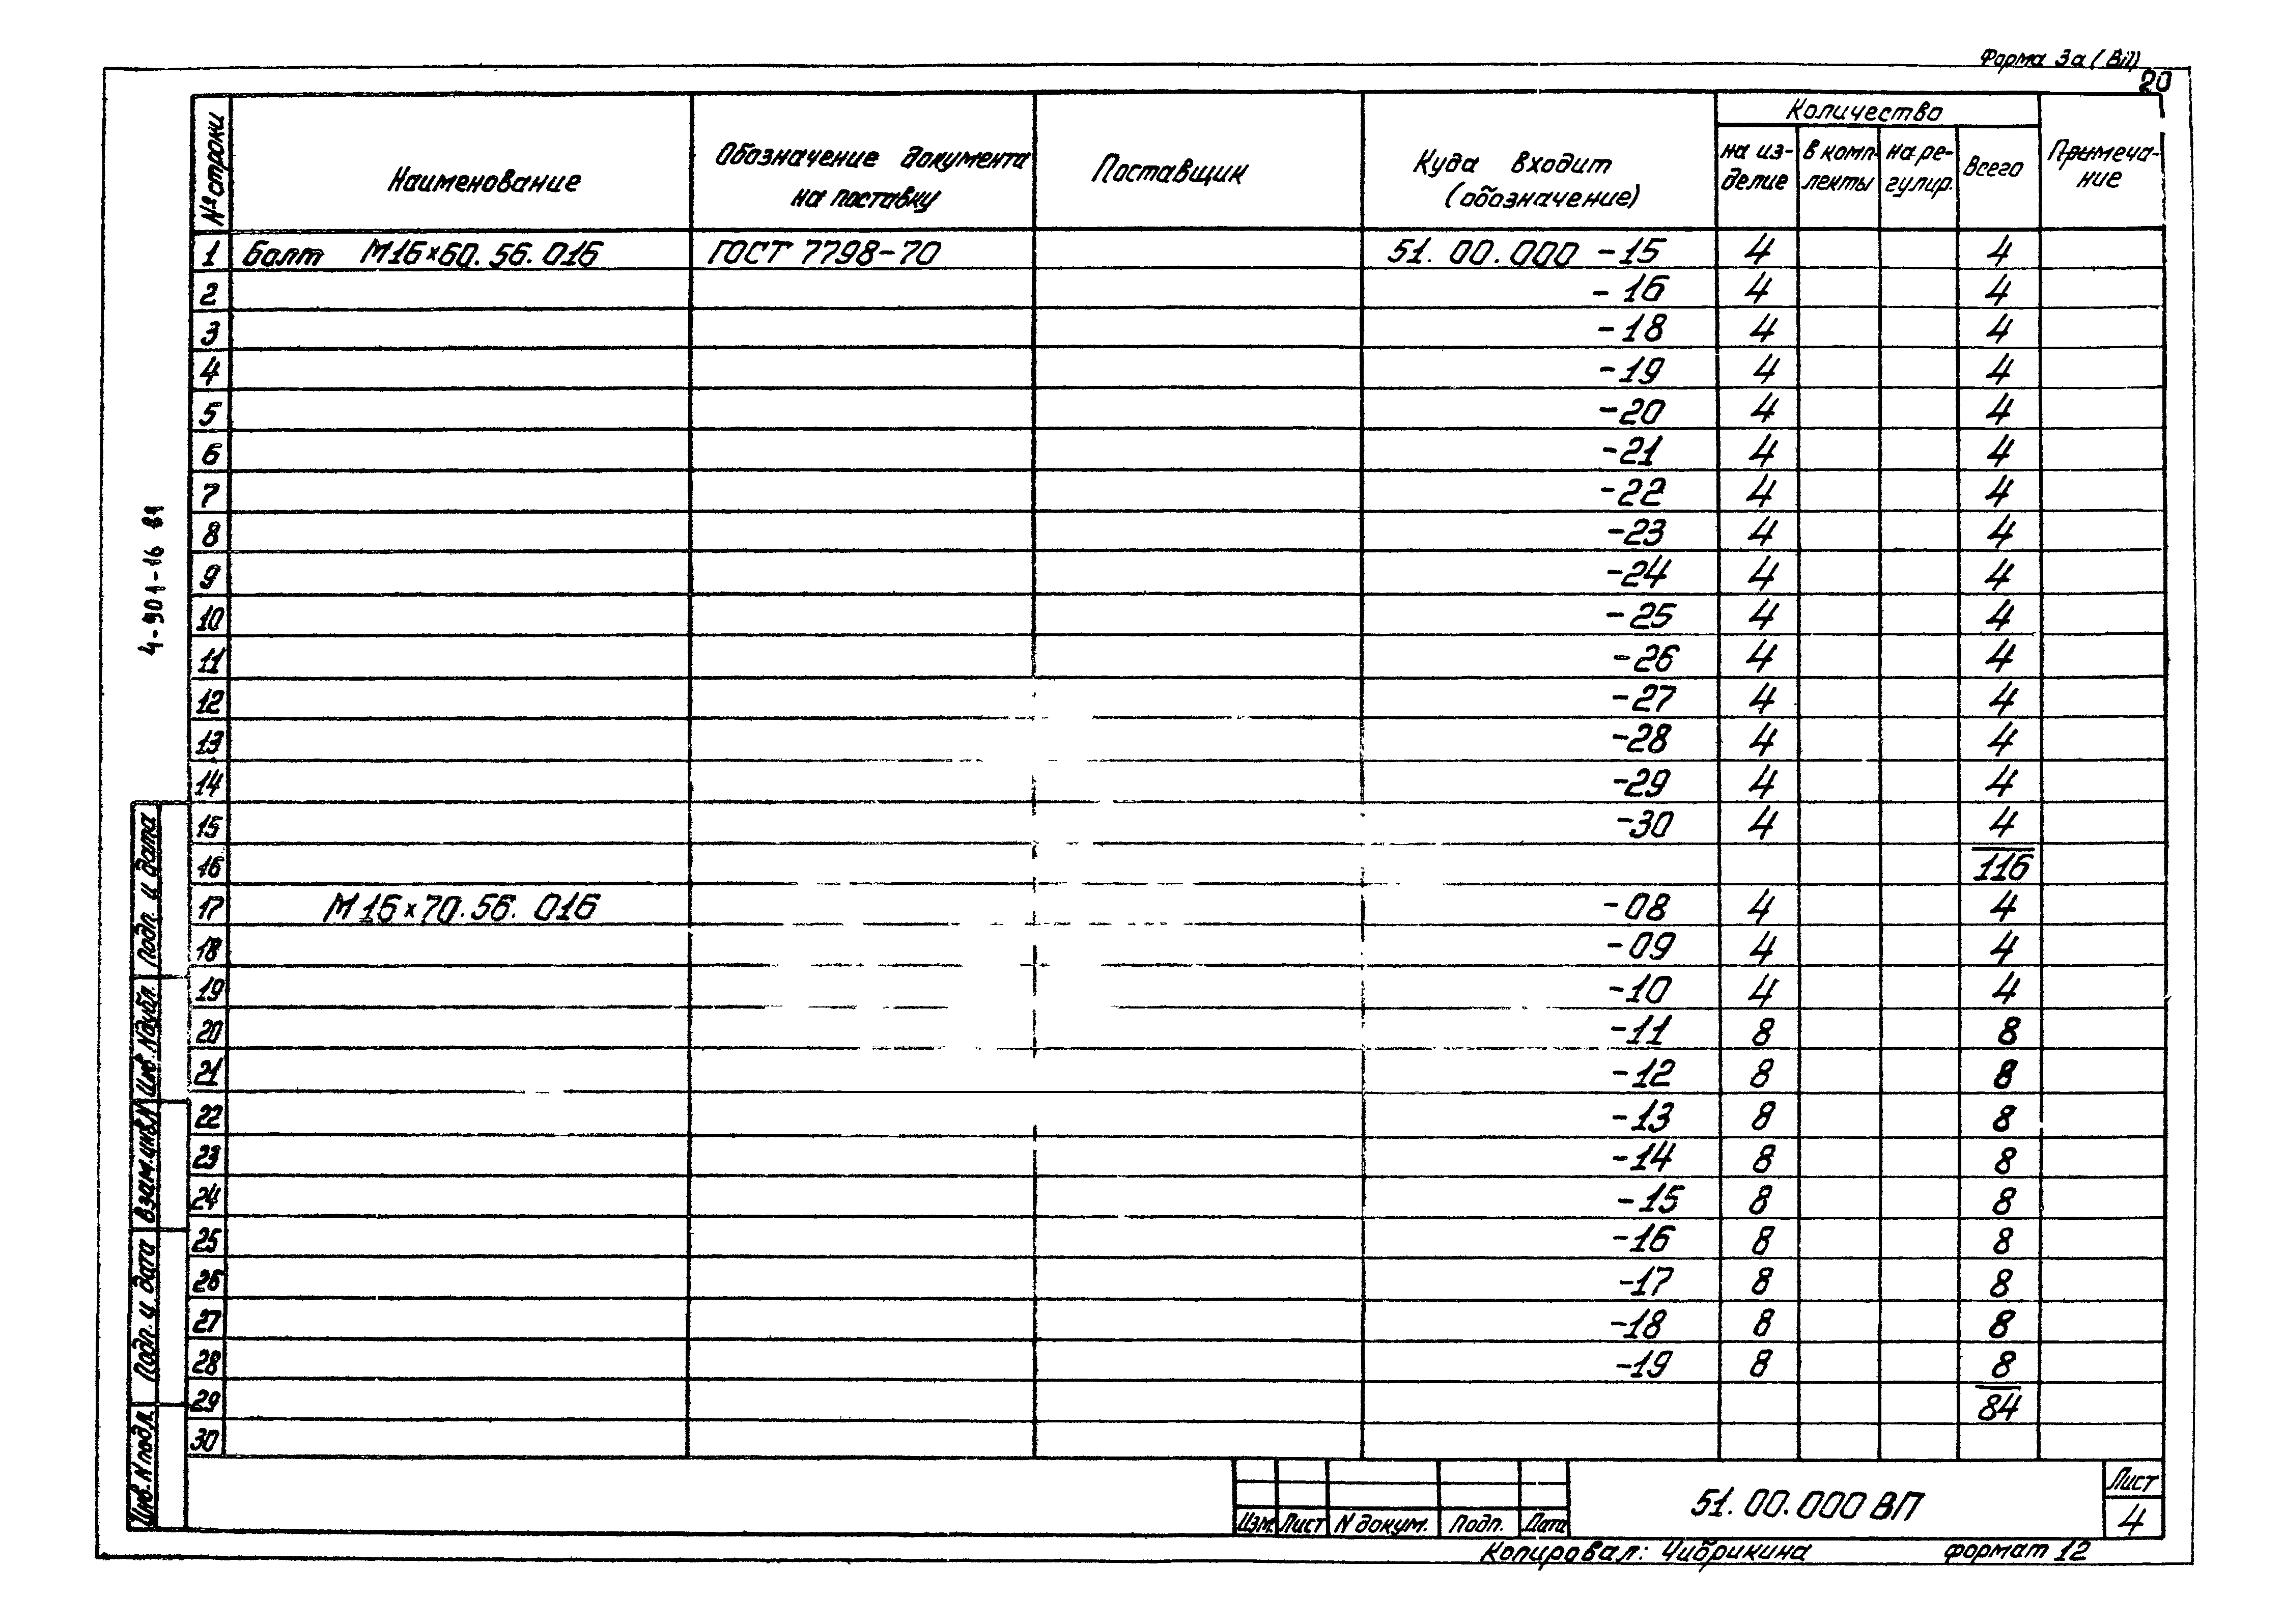 Форма 3а (ВП)
20
№ строки
Наименование
Обозначение документа на поставку
Поставщик
Куда входит (обозначение)
Количество
на из-делие
в комп-лекты
на ре-гулир.
Всего
Примеча-ние
1 Болт М16×60.56.016 ГОСТ 7798-70 51.00.000 -15 4 4
2 -16 4 4
3 -18 4 4
4 -19 4 4
5 -20 4 4
6 -21 4 4
7 -22 4 4
8 -23 4 4
9 -24 4 4
10 -25 4 4
11 -26 4 4
12 -27 4 4
13 -28 4 4
14 -29 4 4
15 -30 4 4
16 116
17 М16×70.56.016 -08 4 4
18 -09 4 4
19 -10 4 4
20 -11 8 8
21 -12 8 8
22 -13 8 8
23 -14 8 8
24 -15 8 8
25 -16 8 8
26 -17 8 8
27 -18 8 8
28 -19 8 8
29 84
30
4-901-16 В1
Подп. и дата
Инв. N дубл.
Взам. инв. N
Подп. и дата
Инв. N подл.
Изм. Лист N докум. Подп. Дата
51.00.000 ВП
Лист
4
Копировал: Чибрикина формат 12